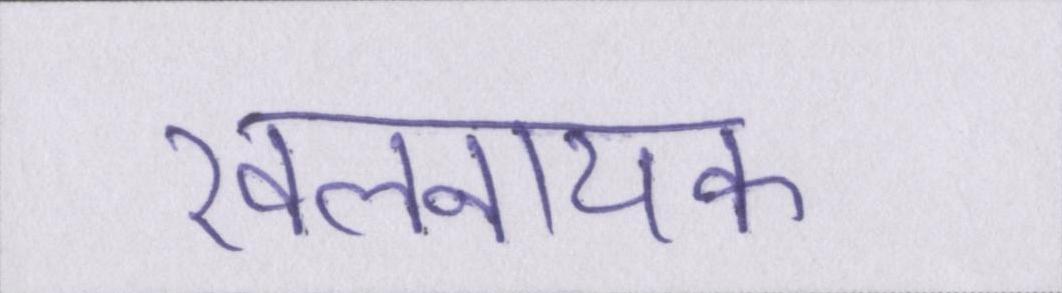 खलनायक